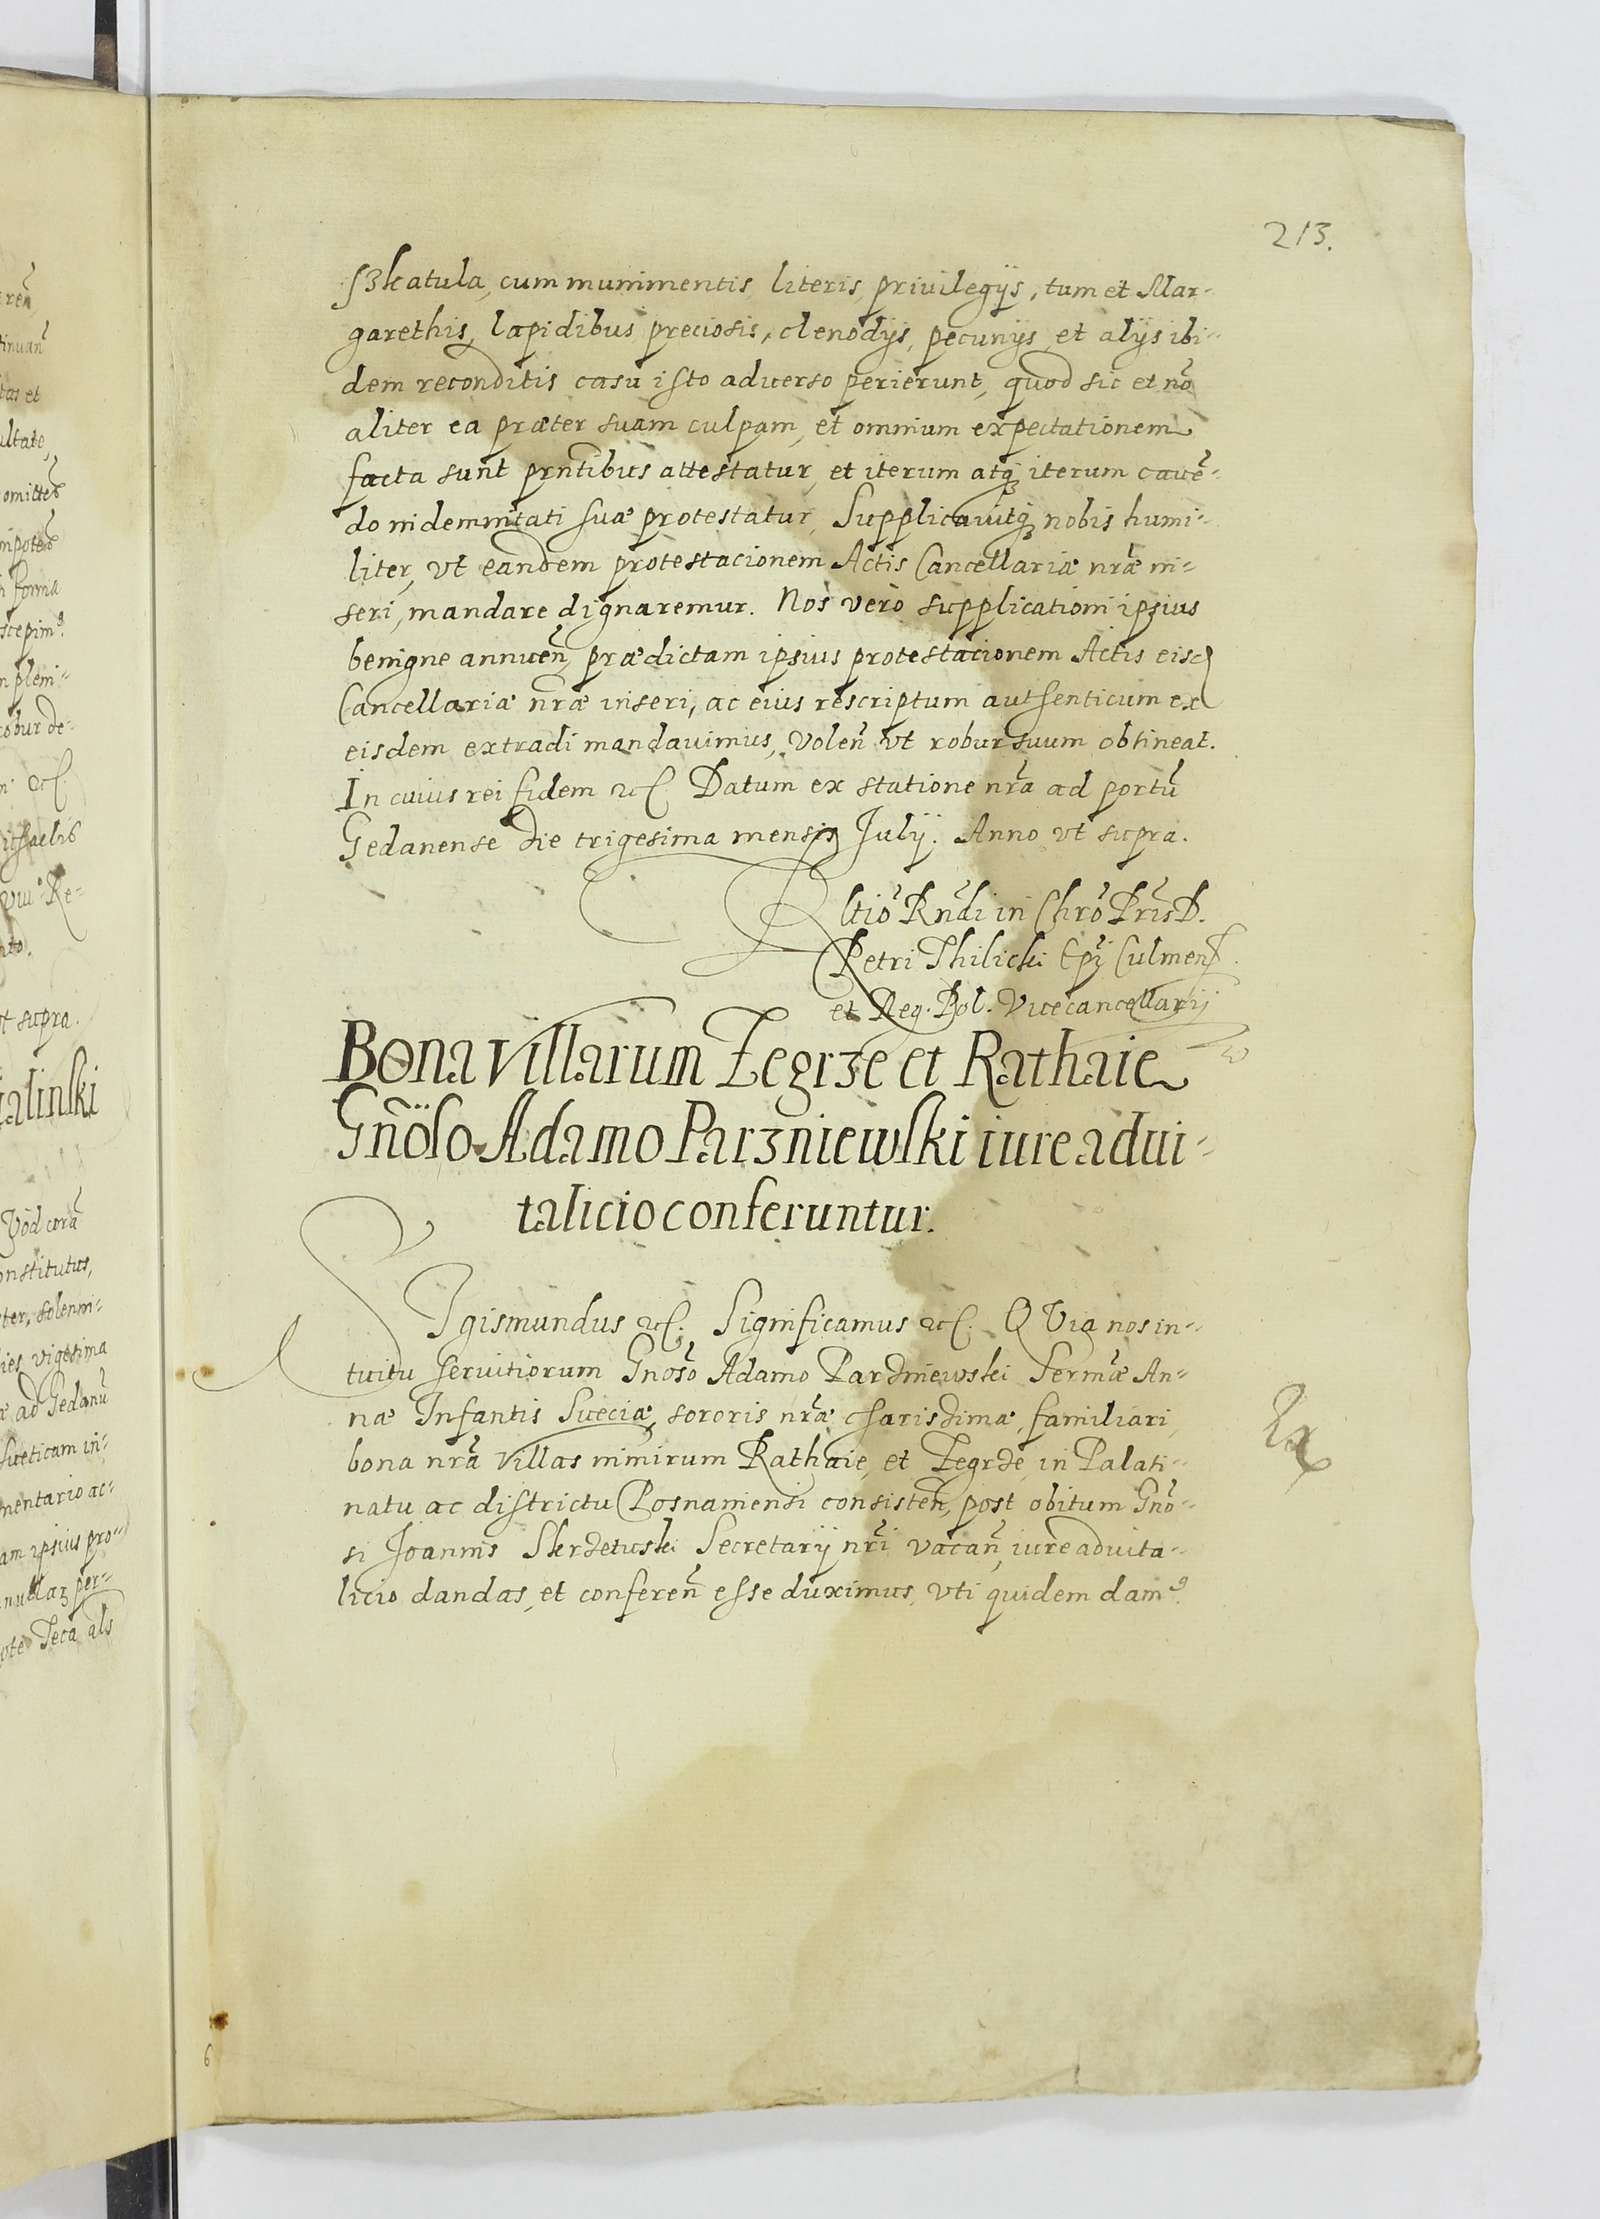 213.
szkatula, cum munimentis literis, privilegijs, tum et Mar-
garethis, lapidibus preciosis, clenodijs, pecunijs et alijs ibi-
dem reconditis casu isto aduerso perierunt, quod sic et nõ
aliter ea præter suam culpam, et omnium expectationem
facta sunt prñtibus attestatur, et iterum atq; iterum cauẽ-
do indemnitati suæ protestatur, Supplicauitq; nobis humi-
liter, vt eandem protestacionem Actis Cancellariæ nr̃æ in-
seri, mandare dignaremur. Nos vero supplicationi ipsius
benigne annueñ, prædictam ipsius protestacionem Actis eisd
Cancellariæ nr̃æ inseri, ac eius rescriptum authenticum ex
eisdem extradi mandauimus, Voleñ vt robur suum obtineat.
In cuius rei fidem etc. Datum ex statione nr̃a ad portũ
Gedanense die trigesima mensis Julij. Anno vt supra.
Rltiõ Rñdi in Chrõ Pr̃is D.
Petri Thilicki Ep̃i Culmens.
et Reg. Pol. Vicecancellarij
Bona villarum Zegrze et Rathaie
Gñoso Adamo Parzniewski iure adui-
talicio conferuntur.
SIgismundus etc. Significamus etc. QVia nos in-
tuitu seruitiorum Gnosõ Adamo Parzniewski Serm̃æ An-
næ Infantis Sueciæ, sororis nr̃æ charissimæ, familiari,
bona nr̃a villas nimirum Rathaie, et Zegrze, in Palati-
natu ac districtu Posnaniensi consisteñ, post obitum Gnõ-
si Joannis Skrzetuski Secretarij nr̃i vacañ, iure aduita-
licio dandas, et confereñ esse duximus, vti quidem dam9
6